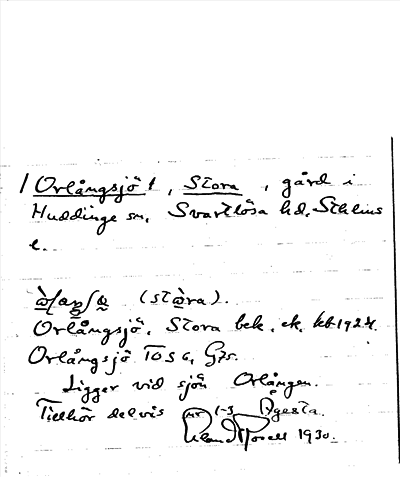 /Orlångsjö/, Stora, gård i
Huddinge sn, Svartlösa hd, Sthlms
l.
(stàra).
Orlångsjö, Stora bek. ek. kb 1924.
Orlångsjö TOS 6, G75.
Ligger vid sjön Orlången.
Tillhör delvis nr 1-3 Ågesta.
1930.